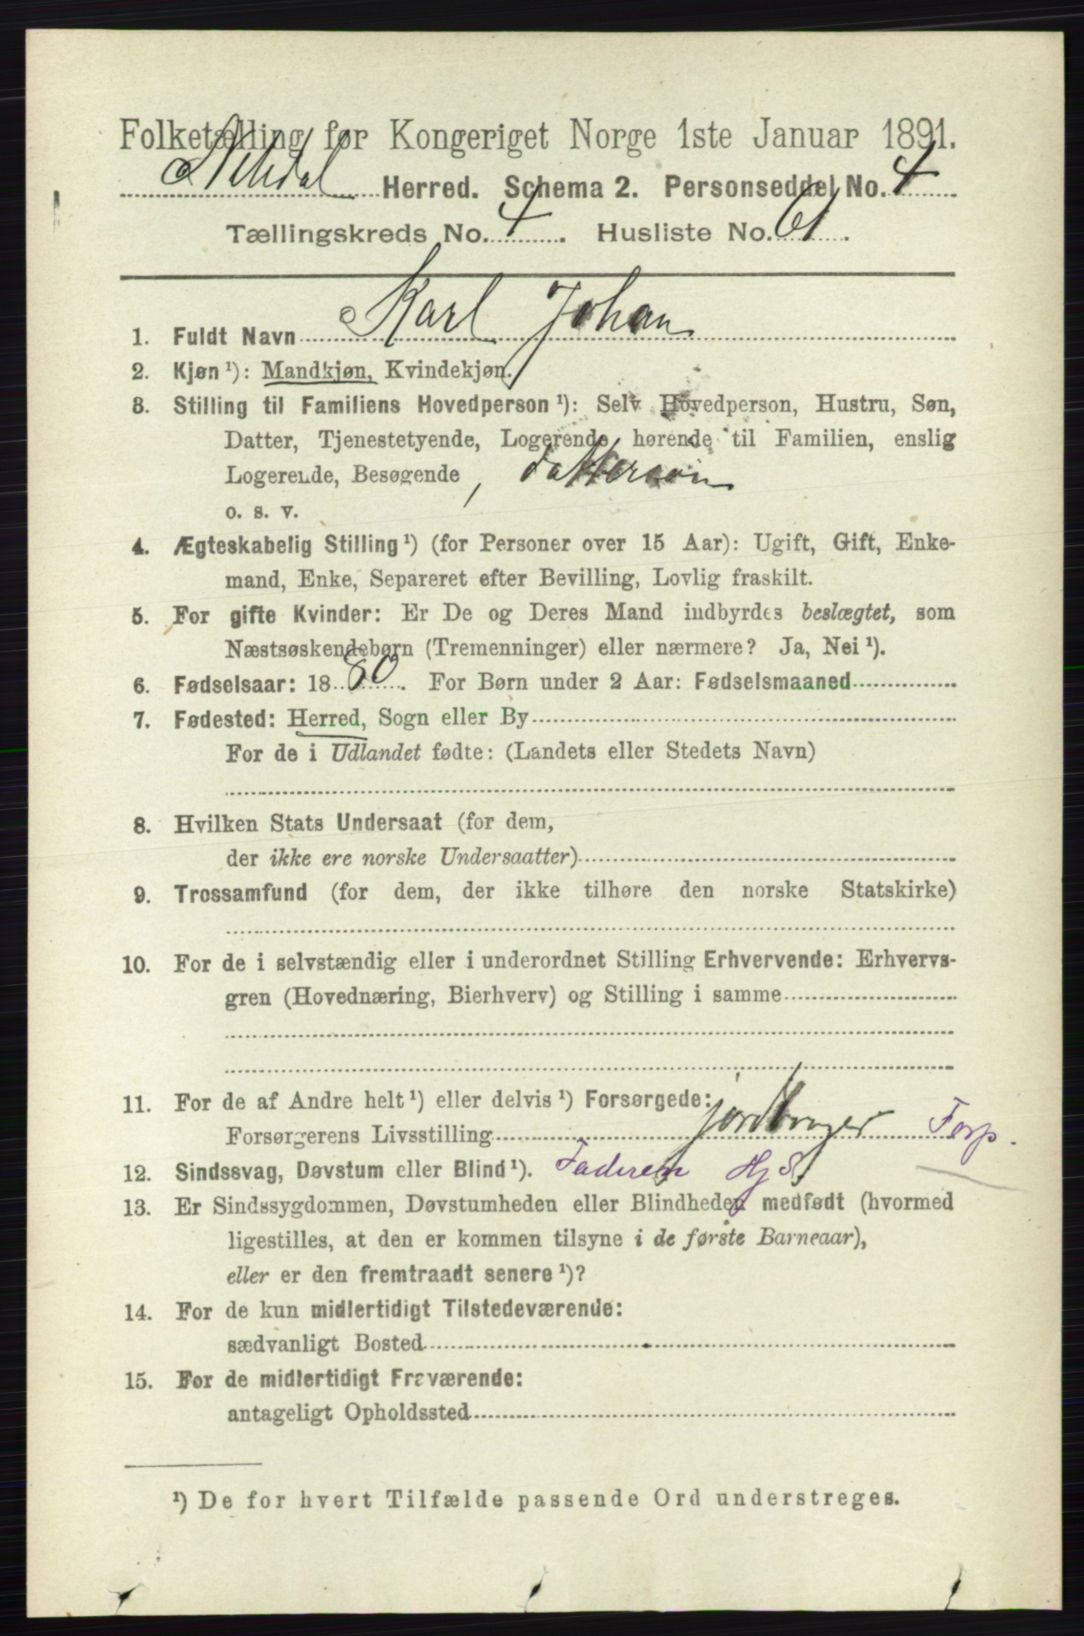 Folketælling for Kongeriget Norge 1ste Januar 1891.
Herred. Schema 2. Personseddel No. 4
Tællingskreds No. 4. Husliste No. 61.
1. Fuldt Navn Karl Johan
2. Kjøn ¹): Mandkjøn, Kvindekjøn.
3. Stilling til Familiens Hovedperson ¹): Selv Hovedperson, Hustru, Søn,
Datter, Tjenestetyende, Logerende hørende til Familien, enslig
Logerende, Besøgende , dattersøn
o. s. v.
4. Ægteskabelig Stilling ¹) (for Personer over 15 Aar): Ugift, Gift, Enke-
mand, Enke, Separeret efter Bevilling, Lovlig fraskilt.
5. For gifte Kvinder: Er De og Deres Mand indbyrdes beslægtet, som
Næstsøskendebørn (Tremenninger) eller nærmere? Ja, Nei ¹).
6. Fødselsaar: 1880. For Børn under 2 Aar: Fødselsmaaned
7. Fødested: Herred, Sogn eller By
For de i Udlandet fødte: (Landets eller Stedets Navn)
8. Hvilken Stats Undersaat (for dem,
der ikke ere norske Undersaatter)
9. Trossamfund (for dem, der ikke tilhøre den norske Statskirke)
10. For de i selvstændig eller i underordnet Stilling Erhvervende: Erhvervs-
gren (Hovednæring, Bierhverv) og Stilling i samme
11. For de af Andre helt ¹) eller delvis ¹) Forsørgede:
Forsørgerens Livsstilling jordbruger Forp.
12. Sindssvag, Døvstum eller Blind ¹). Faderen
13. Er Sindssygdommen, Døvstumheden eller Blindheden medfødt (hvormed
ligestilles, at den er kommen tilsyne i de første Barneaar),
eller er den fremtraadt senere ¹)?
14. For de kun midlertidigt Tilstedeværende:
sædvanligt Bosted
15. For de midlertidigt Fraværende:
antageligt Opholdssted
¹) De for hvert Tilfælde passende Ord understreges.